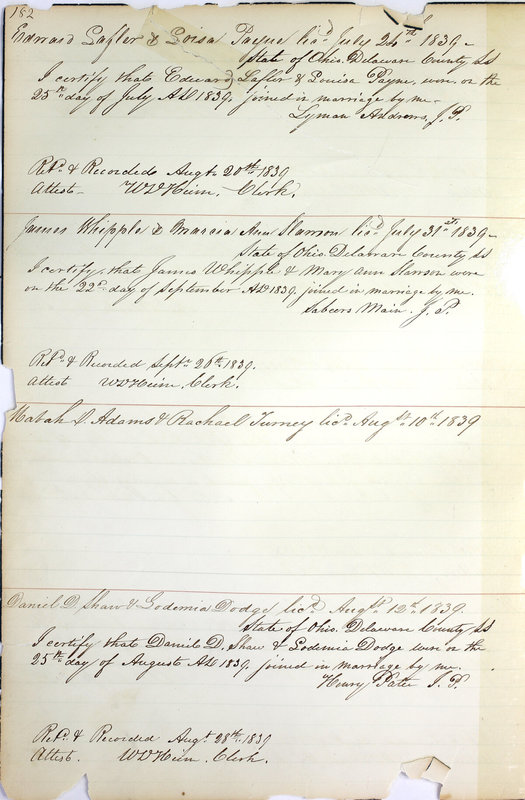 182
Edward Lafler & Loisa Payne licd July 24th 1839 -
State of Ohio Delaware County SS
I certify that Edward Lafler & Louisa Payne, were, on the
25th day of July AD 1839, joined in marriage by me -
Lyman Andrews, J. P.
Retd & Recorded Augt 20th 1839
Attest - Clerk.
James Whipple & Marcia Ann Slawson licd July 31st 1839 -
State of Ohio Delaware County SS
I certify, that James Whipple & Mary Ann Slawson were
on the 22d day of September AD 1839, joined in marriage by me.
Main J. P.
Retd & Recorded Septr 26th 1839.
Attest Clerk.
Adams & Rachael Turney licd Augst 10th 1839
Daniel D. Shaw & Lodemia Dodge licd Augst 12th 1839.
State of Ohio, Delaware County SS
I certify that Daniel D. Shaw & Lodemia Dodge were on the
25th day of August AD 1839. joined in marriage by me.
Henry J. P.
Retd & Recorded Augt 28th 1839
Attest. Clerk.